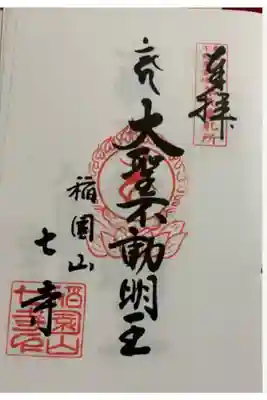 奉拝
大聖不動明王
稲園山
七寺
稲園山
七寺